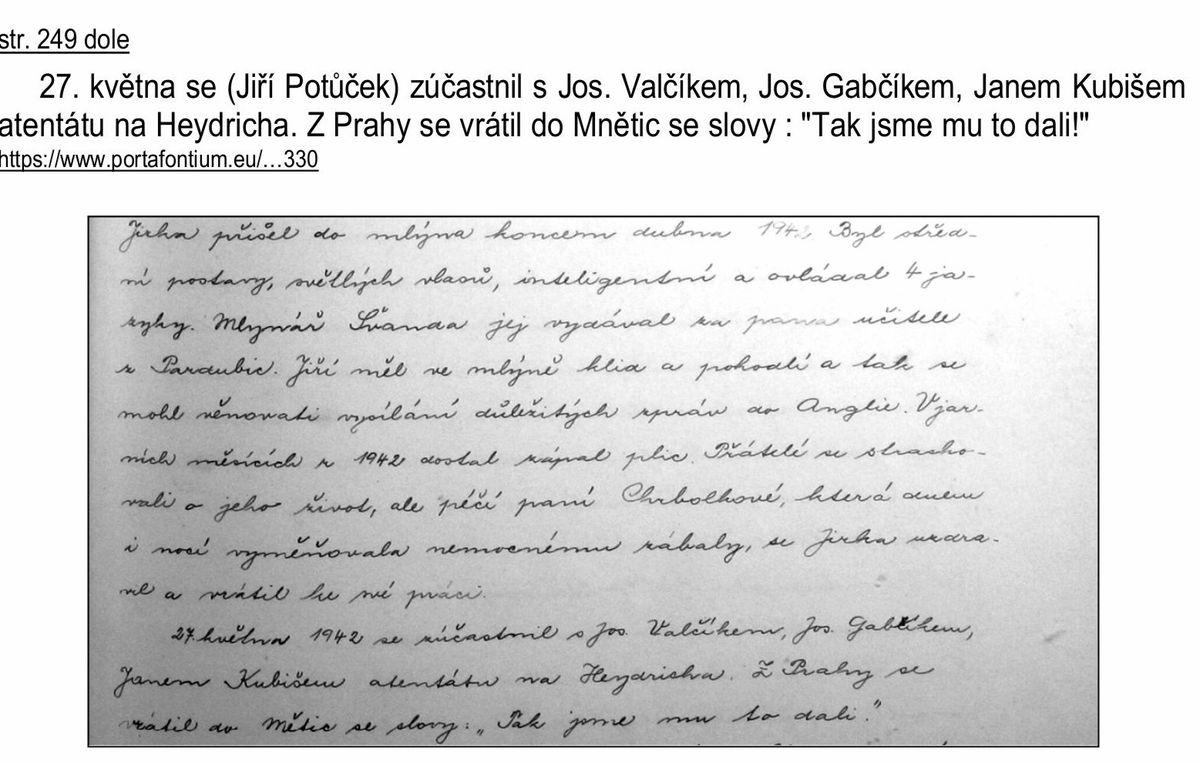 str. 249 dole
27. května se (Jiří Potůček) zúčastnil s Jos. Valčíkem, Jos. Gabčíkem, Janem Kubišem
atentátu na Heydricha. Z Prahy se vrátil do Mnětic se slovy : "Tak jsme mu to dali!"
https://www.portafontium.eu/…330
Jirka přišel do mlýna koncem dubna 1942. Byl střed-
ní postavy, světlých vlasů, inteligentní a ovládal 4 ja-
zyky. Mlynář Švanda jej vydával za pana učitele
z Pardubic. Jiří měl ve mlýně klid a pohodlí a tak se
mohl věnovati vysílání důležitých zpráv do Anglie. V jar-
ních měsících r 1942 dostal zápal plic. Přátelé se stracho-
vali o jeho život, ale péčí paní Chrbolkové, která dnem
i nocí vyměňovala nemocnému zábaly, se Jirka uzdra-
vil a vrátil ke své práci.
27. května 1942 se zúčastnil s Jos. Valčíkem, Jos. Gabčíkem,
Janem Kubišem atentátu na Heydricha. Z Prahy se
vrátil do Mětic se slovy: „Tak jsme mu to dali."